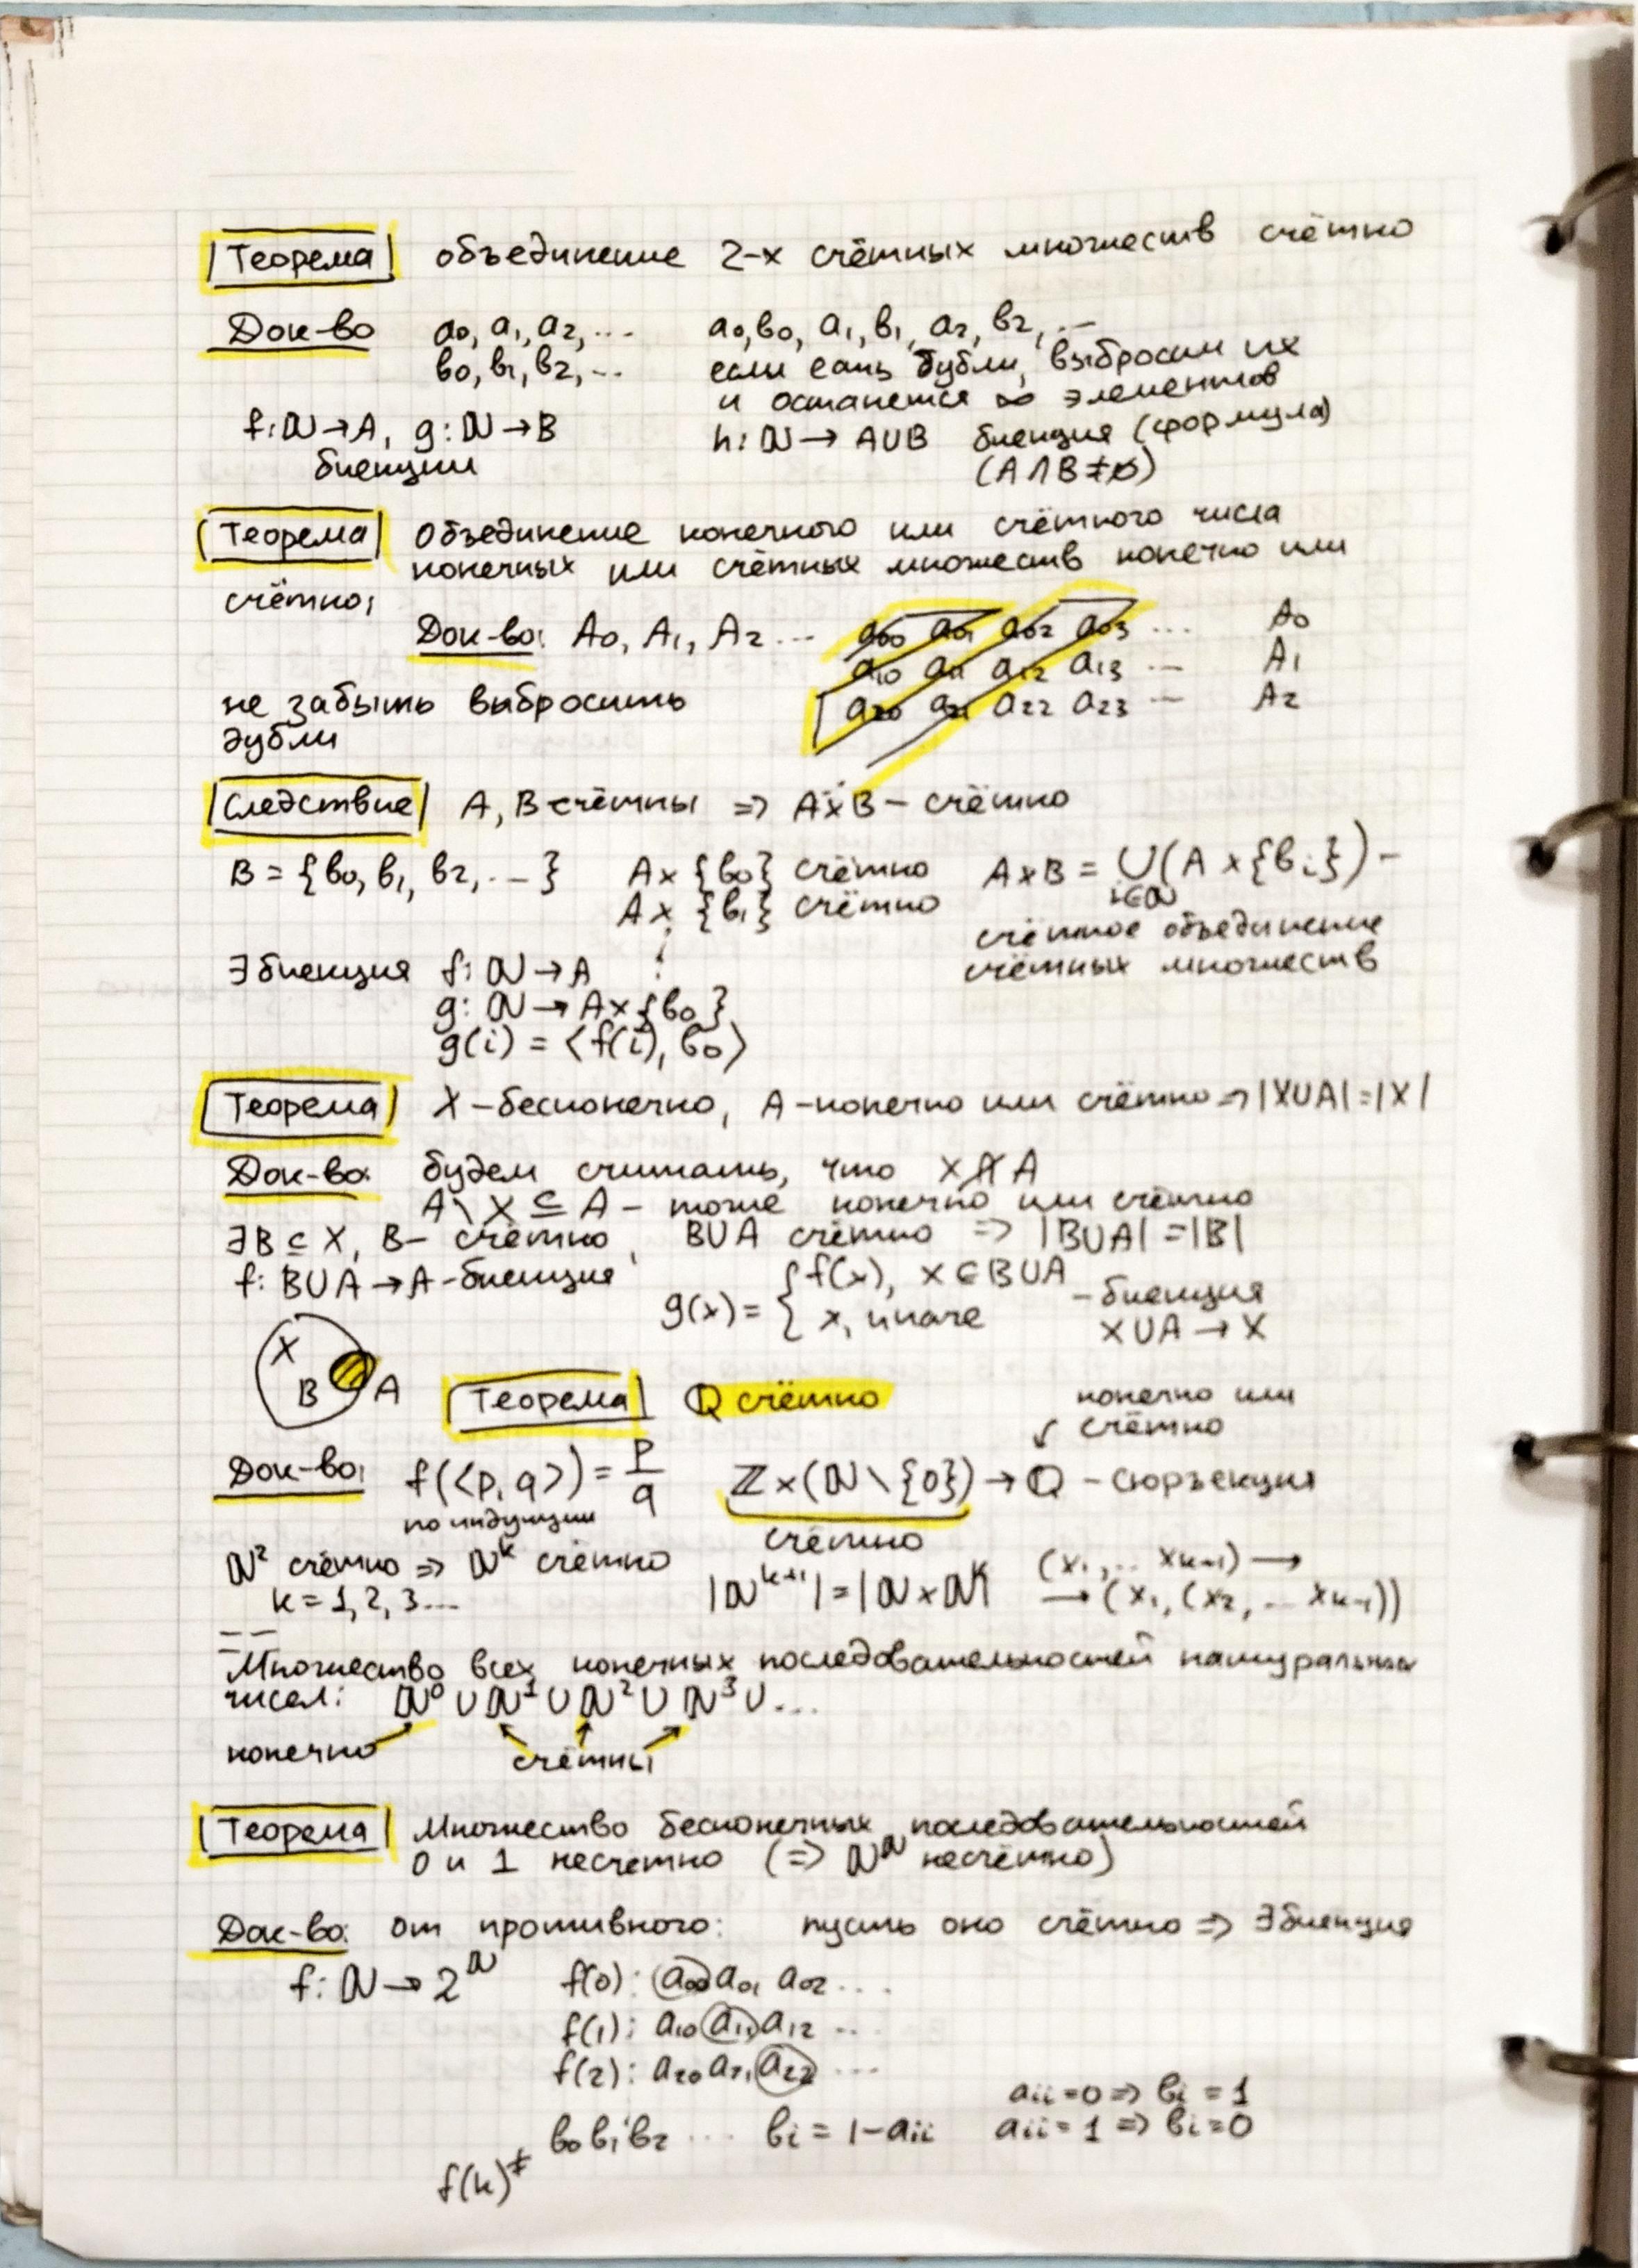 Теорема объединение 2-х счётных множеств счётно
Док-во a₀, a₁, a₂, ... a₀, b₀, a₁, b₁, a₂, b₂, ...
b₀, b₁, b₂, ... если есть дубли, выбросим их
и останется ∞ элементов
f: ℕ → A, g: ℕ → B h: ℕ → A∪B биекция (формула)
биекции (A∩B≠∅)
Теорема Объединение конечного или счётного числа
конечных или счётных множеств конечно или
счётно,
Док-во: A₀, A₁, A₂ ... a₀₀ a₀₁ a₀₂ a₀₃ ... A₀
a₁₀ a₁₁ a₁₂ a₁₃ ... A₁
не забыть выбросить a₂₀ a₂₁ a₂₂ a₂₃ ... A₂
дубли
Следствие A, B счётны => A×B – счётно
B = {b₀, b₁, b₂, ...} A× {b₀} счётно A×B = ∪(A×{bᵢ}) –
A× {b₁} счётно i∈ℕ
счётное объединение
∃ биекция f: ℕ → A счётных множеств
g: ℕ → A×{b₀}
g(i) = ⟨f(i), b₀⟩
Теорема X – бесконечно, A – конечно или счётно => |X∪A| = |X|
Док-во: будем считать, что X A
A \ X ⊆ A – тоже конечно или счётно
∃B ⊆ X, B – счётно, B∪A счётно => |B∪A| = |B|
f: B∪A → A – биекция
g(x) = { f(x), x∈B∪A – биекция
x, иначе X∪A → X
X
B A
Теорема ℚ счётно конечно или
счётно
Док-во: f(⟨p, q⟩) = p/q ℤ×(ℕ\{0}) → ℚ – сюръекция
по индукции счётно
ℕ² счётно => ℕᵏ счётно (x₁, ... xₖ₊₁) →
k = 1, 2, 3... |ℕᵏ⁺¹| = |ℕ×ℕᵏ| → (x₁, (x₂, ... xₖ₊₁))
Множество всех конечных последовательностей натуральных
чисел: ℕ⁰ ∪ ℕ¹ ∪ ℕ² ∪ ℕ³ ∪ ...
конечно счётны
Теорема Множество бесконечных последовательностей
0 и 1 несчетно (=> ℕ^ℕ несчётно)
Док-во: от противного: пусть оно счётно => ∃ биекция
f: ℕ → 2^ℕ f(0): a₀₀ a₀₁ a₀₂ ...
f(1): a₁₀ a₁₁ a₁₂ ...
f(2): a₂₀ a₂₁ a₂₂ ...
aᵢᵢ = 0 => bᵢ = 1
b₀ b₁ b₂ ... bᵢ = 1 – aᵢᵢ aᵢᵢ = 1 => bᵢ = 0
f(k) ≠